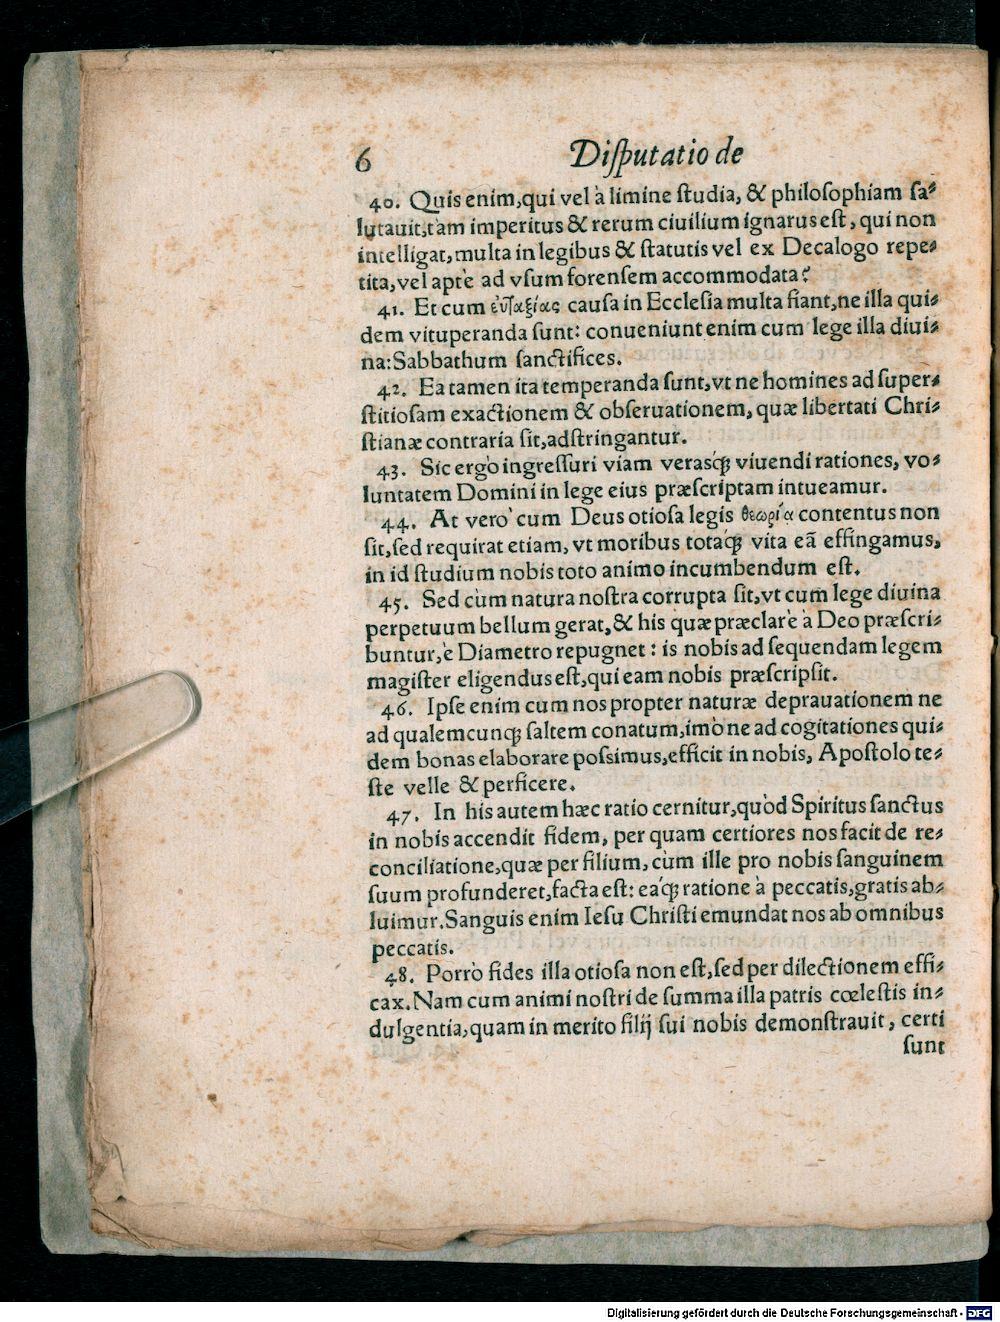 6 Diſputatio de
40. Quis enim,qui vel à limine ſtudia, & philoſophiam ſa⸗
lutauit,tàm imperitus & rerum ciuilium ignarus eſt, qui non
intelligat, multa in legibus & ſtatutis vel ex Decalogo repe⸗
tita,vel aptè ad vſum forenſem accommodata?
41. Et cum εὐταξίας cauſa in Eccleſia multa fiant,ne illa qui⸗
dem vituperanda ſunt: conueniunt enim cum lege illa diui⸗
na:Sabbathum ſanctifices.
42. Ea tamen ita temperanda ſunt,vt ne homines ad ſuper⸗
ſtitioſam exactionem & obſeruationem, quæ libertati Chri⸗
ſtianæ contraria ſit,adſtringantur.
43. Sic ergò ingreſſuri viam verasq́; viuendi rationes, vo⸗
luntatem Domini in lege eius præſcriptam intueamur.
44. At verò cum Deus otioſa legis θεωρίᾳ contentus non
ſit,ſed requirat etiam, vt moribus totaq́; vita eã effingamus,
in id ſtudium nobis toto animo incumbendum eſt.
45. Sed cùm natura noſtra corrupta ſit,vt cum lege diuina
perpetuum bellum gerat,& his quæ præclarè à Deo præſcri⸗
buntur,è Diametro repugnet: is nobis ad ſequendam legem
magiſter eligendus eſt,qui eam nobis præſcripſit.
46. Ipſe enim cum nos propter naturæ deprauationem ne
ad qualemcunq; ſaltem conatum,imò ne ad cogitationes qui⸗
dem bonas elaborare poſsimus,efficit in nobis, Apoſtolo te⸗
ſte velle & perficere.
47. In his autem hæc ratio cernitur,quòd Spiritus ſanctus
in nobis accendit fidem, per quam certiores nos facit de re⸗
conciliatione,quæ per filium, cùm ille pro nobis ſanguinem
ſuum profunderet,facta eſt: eaq́; ratione à peccatis,gratis ab⸗
luimur.Sanguis enim Ieſu Chriſti emundat nos ab omnibus
peccatis.
48. Porrò fides illa otioſa non eſt,ſed per dilectionem effi⸗
cax.Nam cum animi noſtri de ſumma illa patris cœleſtis in⸗
dulgentia,quam in merito filij ſui nobis demonſtrauit, certi
ſunt
Digitalisierung gefördert durch die Deutsche Forschungsgemeinschaft - DFG